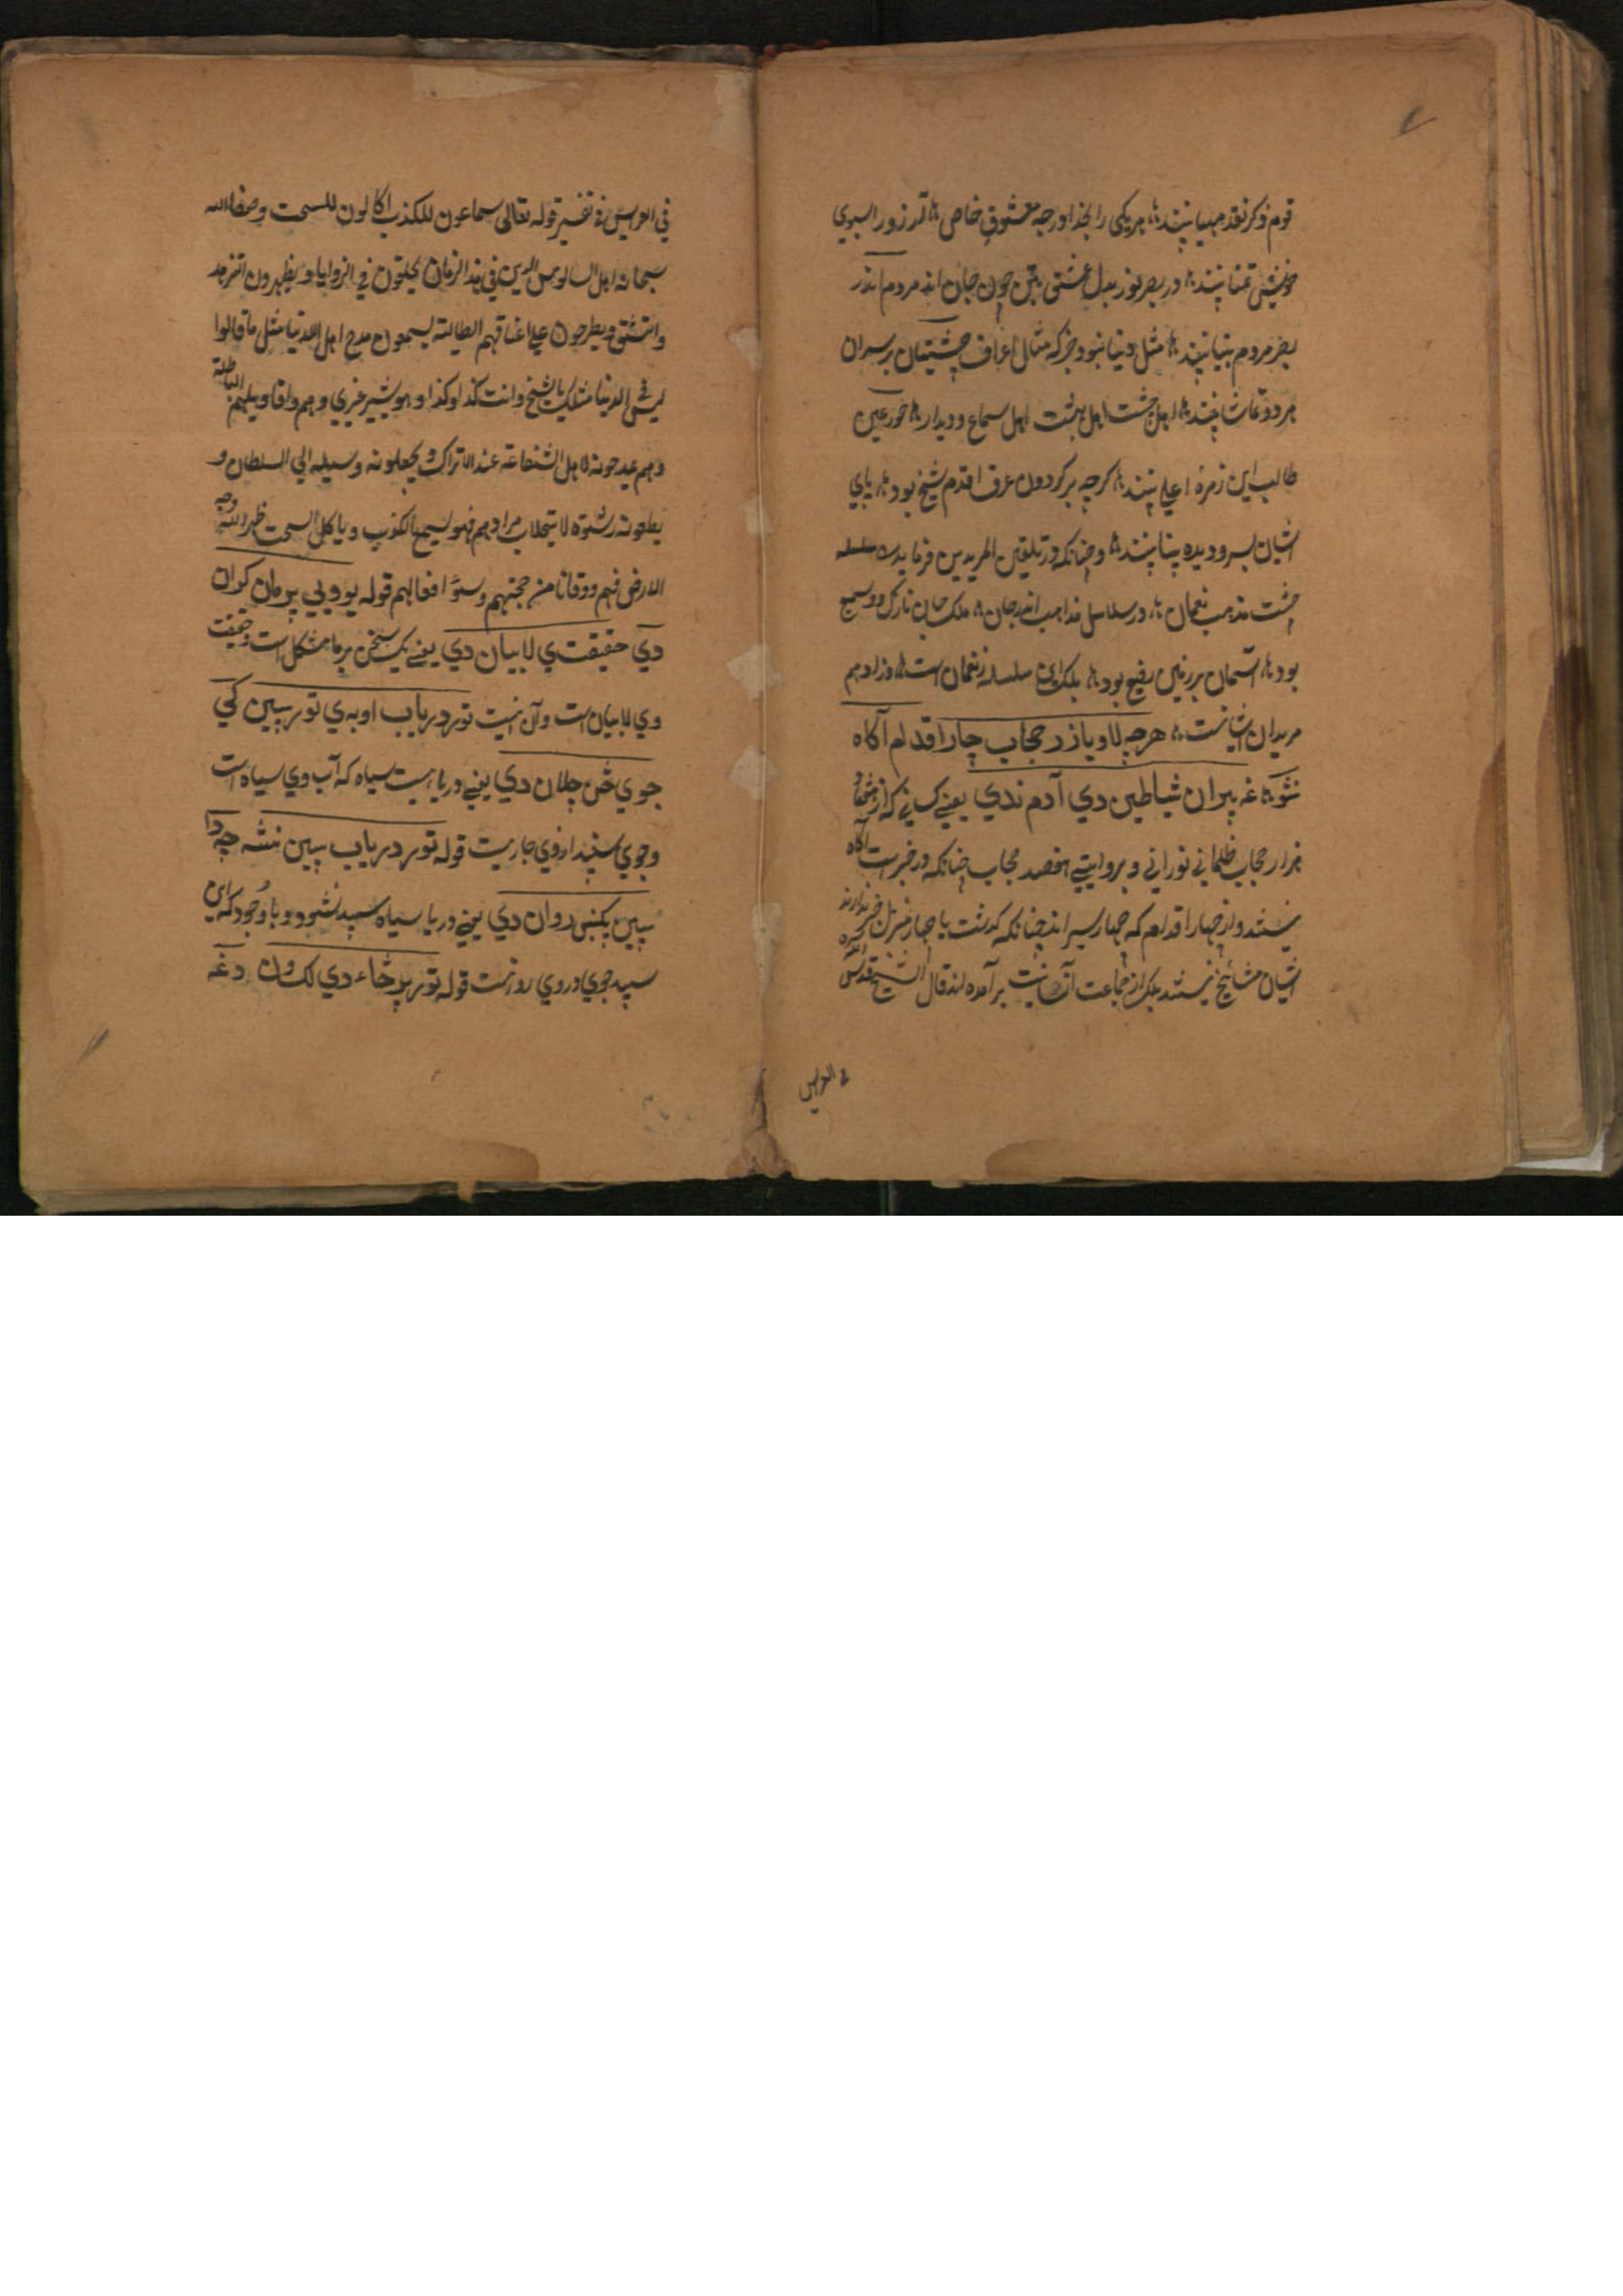 قوم ذکر نقد مهیا بینند هر یکی را بخدا و رجه معشوق خاص
خویش تمنا بینند در بصر نور بدل عشق بتن چون جان اند مردم اندر
بصر مردم بینا بینند مثل دنیا نبود جز که مثال اعراف چشتیان بر سر ان
هر دو تماشا بینند اهل چشت اهل بهشت اهل سماع و دیدار حور عین
طالب این زمره اعلی بینند کرچه بر کردون عرفا قدم شیخ بود پای
ایشان بسر و دیده بینا بینند و چنانکه در تلقین المریدین فرماید سلسله
چشت مذهب نعمان در سلاسل مذاهب اندر جان ملک جان نازک و وسیع
بود آسمان بر زمین رفیع بود بلک این سلسله ز نعمان است وزاد هم
مریدان ایشانست هرچه لا ویاز در حجاب چار اقدلم آکاه
نشو غه پیران شیاطین دي آدم ندي یعنی کسانی که از هفتاد
هزار حجاب ظلمانی نورانی و بروایتی هفصد حجاب چنانکه در خبر است آکاه
نیستند و از چهار اقدلم که چهار سیر اند چنانکه کذشت یا چهار منزل خبر ندارند
ایشان مشایخ نیستند بلک از جماعت آن بر آمده اند قال الشیخ قدس الله سره
في العرایس
في العرایس في تفسیر قوله تعالی سماعون للکذب اکالون للسحت وصف الله
سبحانه اهل السالوس الذین في هذا الزمان یجلسون في الزوایا و یظهرون التزهد
والتشق و یطرحون علی اعناقهم الطیالسة یسمعون مدح اهل الدنیا مثل ما قالوا
لیس في الدنیا مثلک یا شیخ وانت کذا وکذا وهو یشیر غیري وهم واقاویلهم الباطلة
وهم یمدحونه لاجل الشفاعة عند الاتراک و یجعلونه وسیله الي السلطان و
یعطونه رشوة لاستجلاب مرادهم فهو یسمع الکذب و یاکل السحت طهر الله وجه
الارض منهم ووقانا من صحبتهم وسوء افعالهم قوله یو ویي پر مان کران
دي حقیقت ي لا بیان دي یعنی یک سخن بر ما مشکل است و حقیقت
وي لا بیان است و آن اینست تور دریاب اوبه ي تور سپین کي
جوي خن چلان دي یعنی دریا ایست سیاه که آب وي سیاه است
و جوي سپید از وي جاریست قوله تور دریاب سپین نشه چه دا
سپین پکښی روان دي یعنی دریا سیاه سپید نشود و با وجود که این
سپید جوي در وي روانست قوله تور پر ځاء دي لک ون دغه